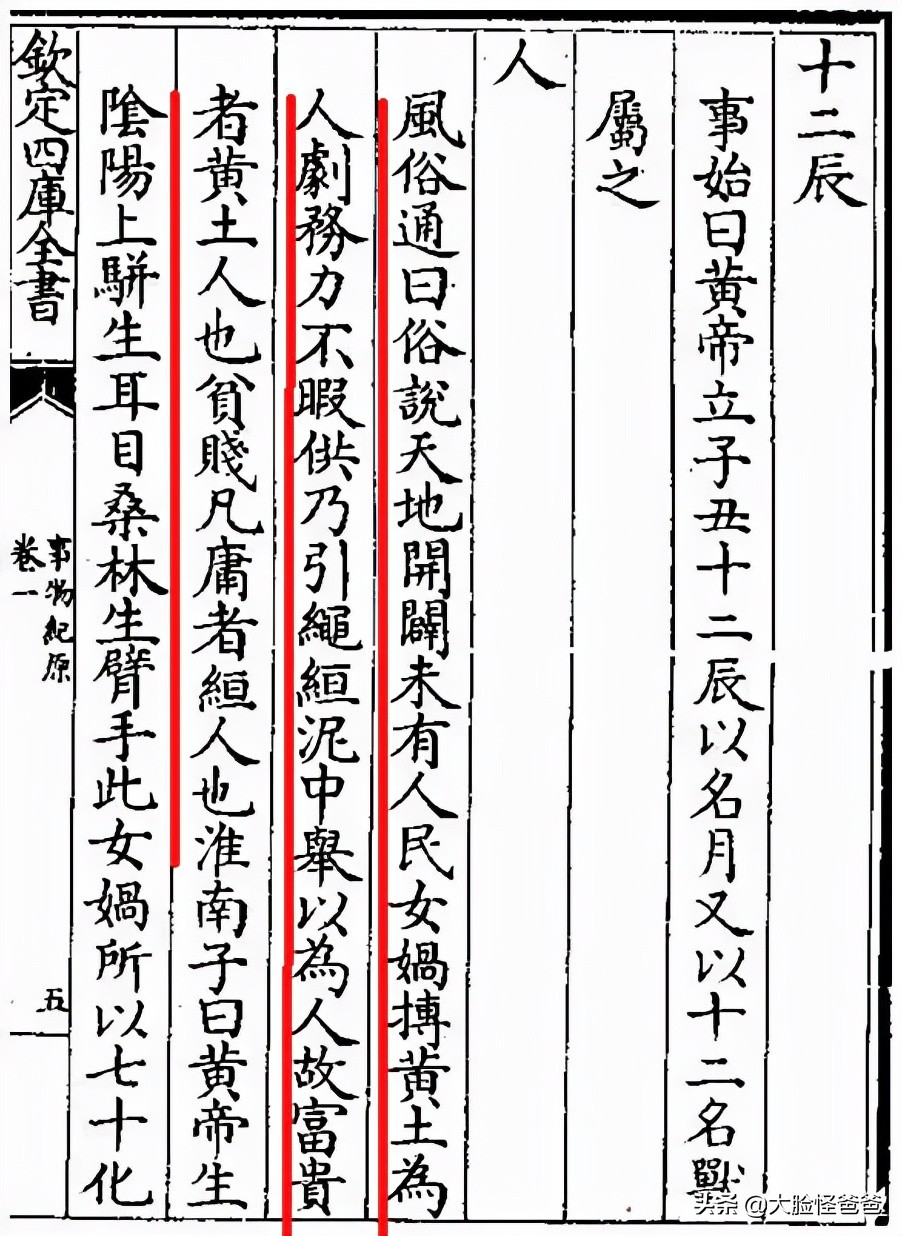 十二辰
事始曰黄帝立子丑十二辰以名月又以十二名獸
屬之
人
風俗通曰俗說天地開闢未有人民女媧摶黄土為
人劇務力不暇供乃引繩絙泥中舉以為人故富貴
者黄土人也貧賤凡庸者絙人也淮南子曰黄帝生
陰陽上騈生耳目桑林生臂手此女媧所以七十化
欽定四庫全書
事物紀原
卷一
五
头条 @大脸怪爸爸